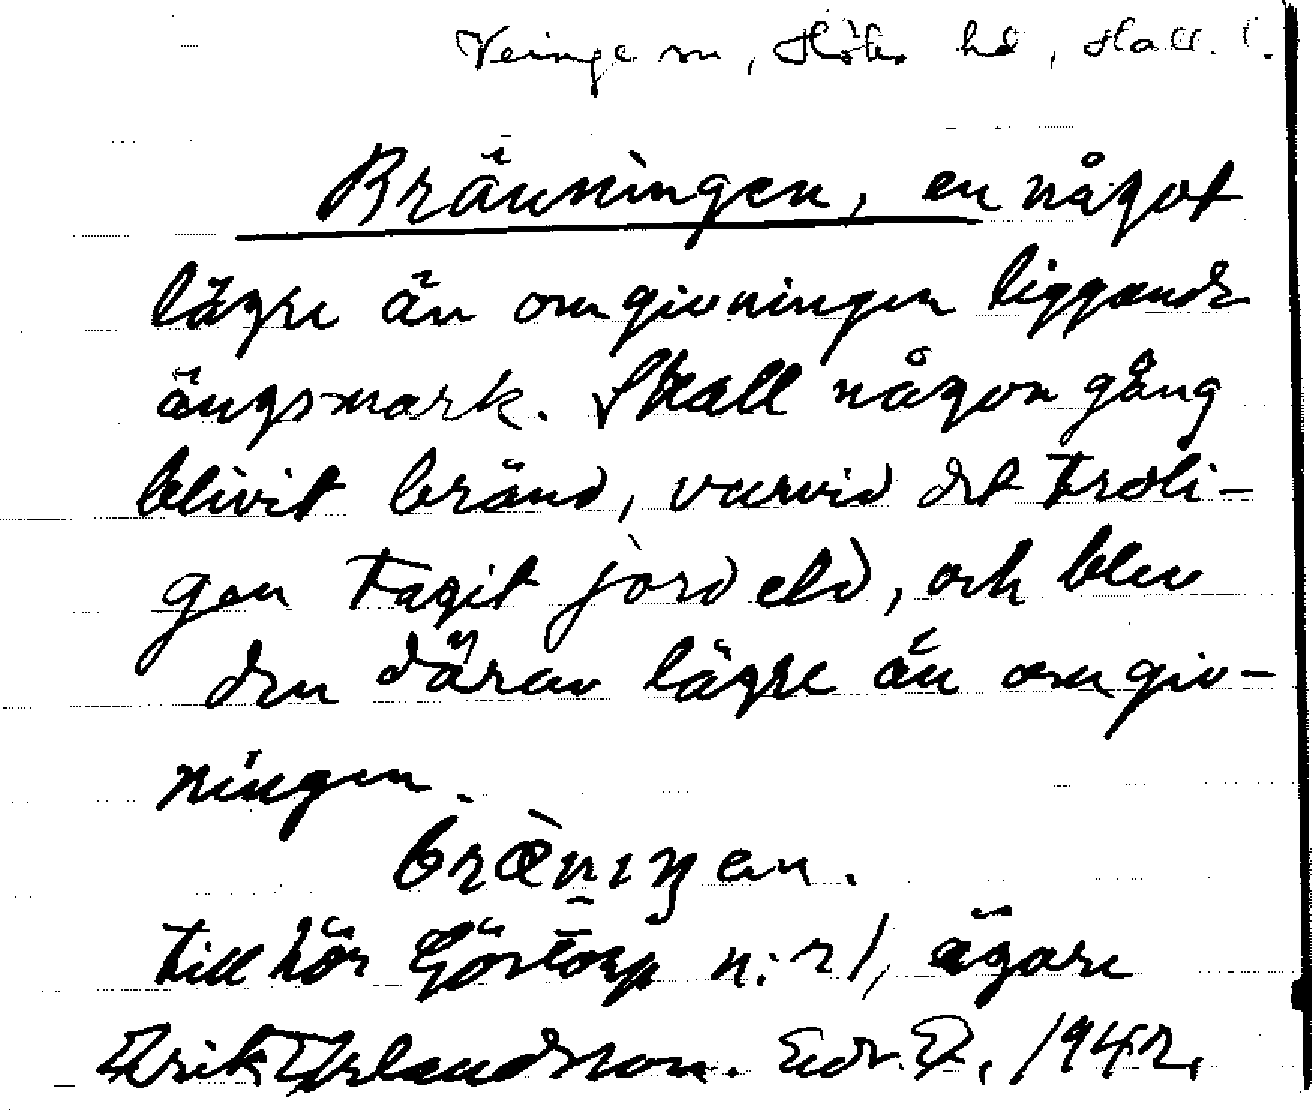 Veinge sn, Höks hd, Hall. l.
Bränningen, en något
lägre än omgivningen liggande
ängsmark. Skall någon gång
blivit bränd, varvid det troli-
gen tagit jord eld, och blev
den därav lägre än omgiv-
ningen.
bræ̀nıŋen.
tillhör Göstorp n:r 1, ägare
Erik Erlandsson. Edv. P. 1942.